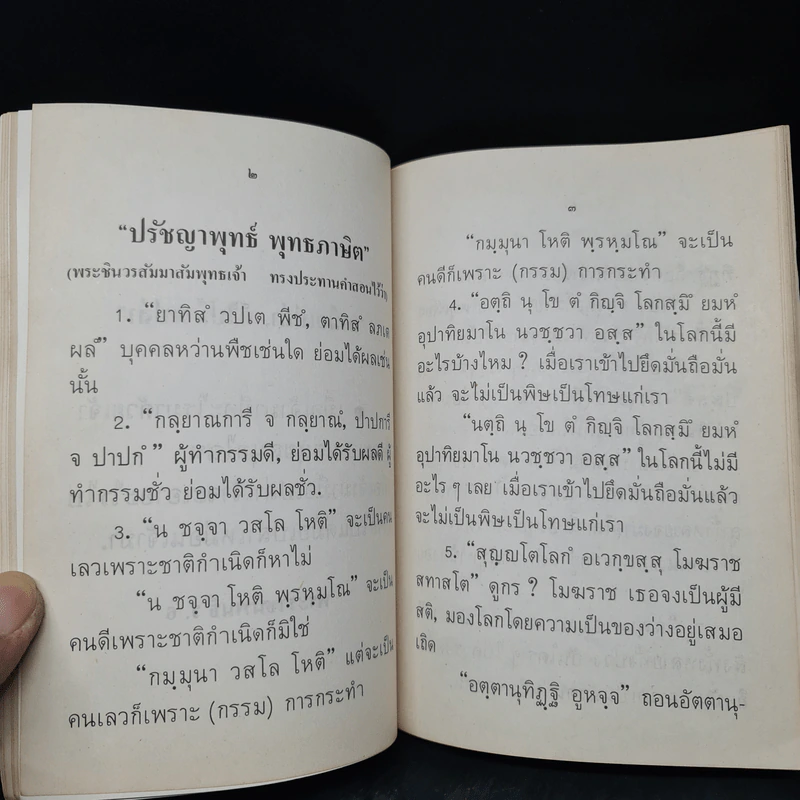 ๒
“ปรัชญาพุทธ์ พุทธภาษิต”
(พระชินวรสัมมาสัมพุทธเจ้า ทรงประทานคำสอนไว้ว่า)
1. “ยาทิสํ วปเต พีชํ, ตาทิสํ ลภเต
ผลํ” บุคคลหว่านพืชเช่นใด ย่อมได้ผลเช่น
นั้น
2. “กลฺยาณการี จ กลฺยาณํ, ปาปการี
จ ปาปกํ” ผู้ทำกรรมดี, ย่อมได้รับผลดี ผู้
ทำกรรมชั่ว ย่อมได้รับผลชั่ว.
3. “น ชจฺจา วสโล โหติ” จะเป็นคน
เลวเพราะชาติกำเนิดก็หาไม่
“น ชจฺจา โหติ พฺรหฺมโณ” จะเป็น
คนดีเพราะชาติกำเนิดก็มิใช่
“กมฺมุนา วสโล โหติ” แต่จะเป็น
คนเลวก็เพราะ (กรรม) การกระทำ
๓
“กมฺมุนา โหติ พฺรหฺมโณ” จะเป็น
คนดีก็เพราะ (กรรม) การกระทำ
4. “อตฺถิ นุ โข ตํ กิญฺจิ โลกสฺมึ ยมหํ
อุปาทิยมาโน นวชฺชวา อสฺส” ในโลกนี้มี
อะไรบ้างไหม ? เมื่อเราเข้าไปยึดมั่นถือมั่น
แล้ว จะไม่เป็นพิษเป็นโทษแก่เรา
“นตฺถิ นุ โข ตํ กิญฺจิ โลกสฺมึ ยมหํ
อุปาทิยมาโน นวชฺชวา อสฺส” ในโลกนี้ไม่มี
อะไร ๆ เลย เมื่อเราเข้าไปยึดมั่นถือมั่นแล้ว
จะไม่เป็นพิษเป็นโทษแก่เรา
5. “สุญฺญโตโลกํ อเวกฺขสฺสุ โมฆราช
สทาสโต” ดูกร ? โมฆราช เธอจงเป็นผู้มี
สติ, มองโลกโดยความเป็นของว่างอยู่เสมอ
เถิด
“อตฺตานุทิฏฺฐิ อูหจฺจ” ถอนอัตตานุ-